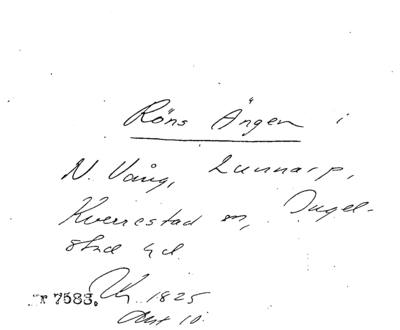 Röns Ängen i
N. Vång, Lunnarp,
Kverrestad sn, Ingel-
stad hd.
r 7583. 1825
Akt 10.